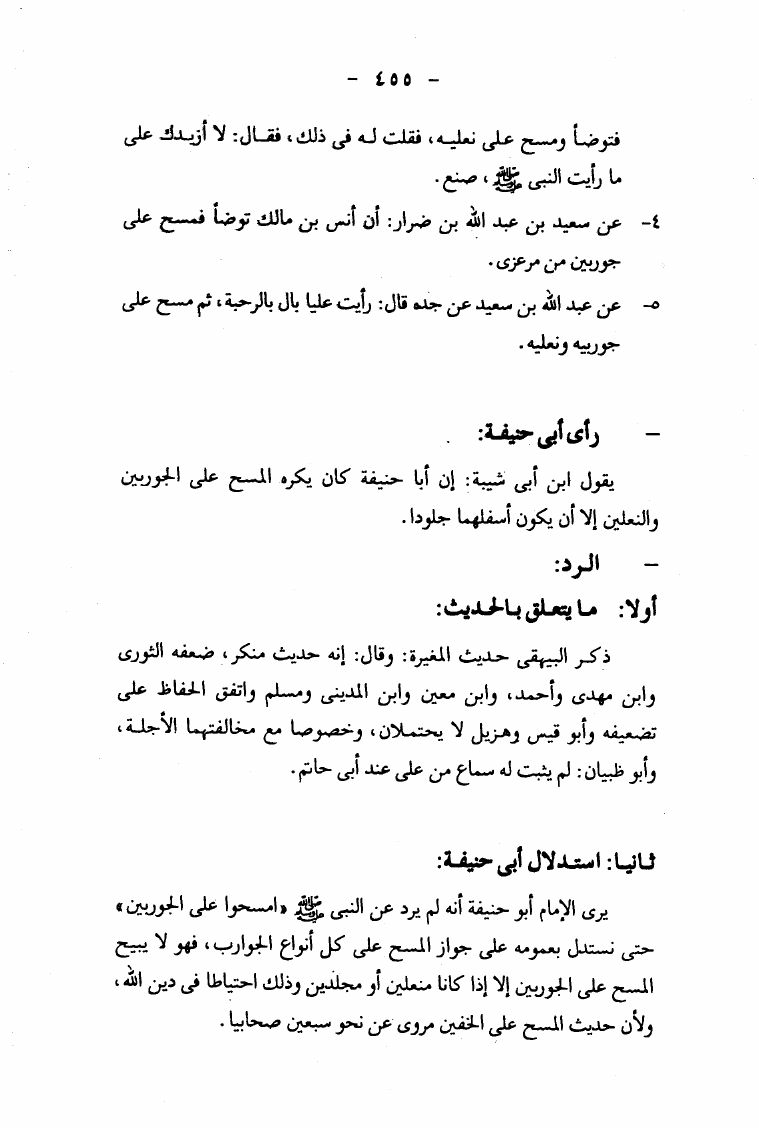 - ٤٥٥ -
فتوضأ ومسح على نعليه، فقلت له فى ذلك، فقال: لا أزيدك على
ما رأيت النبى ﷺ، صنع.
٤- عن سعيد بن عبد الله بن ضرار: أن أنس بن مالك توضأ فمسح على
جوربين من مرعزى.
٥- عن عبد الله بن سعيد عن جده قال: رأيت عليا بال بالرحبة، ثم مسح على
جوربيه ونعليه.
- رأى أبى حنيفة:
يقول ابن أبى شيبة: إن أبا حنيفة كان يكره المسح على الجوربين
والنعلين إلا أن يكون أسفلهما جلودا.
- الرد:
أولا: ما يتعلق بالحديث:
ذكر البيهقى حديث المغيرة: وقال: إنه حديث منكر، ضعفه الثورى
وابن مهدى وأحمد، وابن معين وابن المدينى ومسلم واتفق الحفاظ على
تضعيفه وأبو قيس وهزيل لا يحتملان، وخصوصا مع مخالفتهما الأجلة،
وأبو ظبيان: لم يثبت له سماع من على عند أبى حاتم.
ثانيا: استدلال أبى حنيفة:
يرى الإمام أبو حنيفة أنه لم يرد عن النبى ﷺ «امسحوا على الجوربين»
حتى نستدل بعمومه على جواز المسح على كل أنواع الجوارب، فهو لا يبيح
المسح على الجوربين إلا إذا كانا منعلين أو مجلدين وذلك احتياطا فى دين الله،
ولأن حديث المسح على الخفين مروى عن نحو سبعين صحابيا.